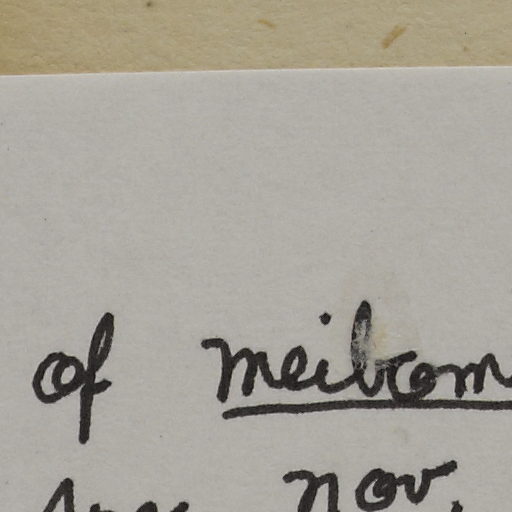 of meibom
nov.